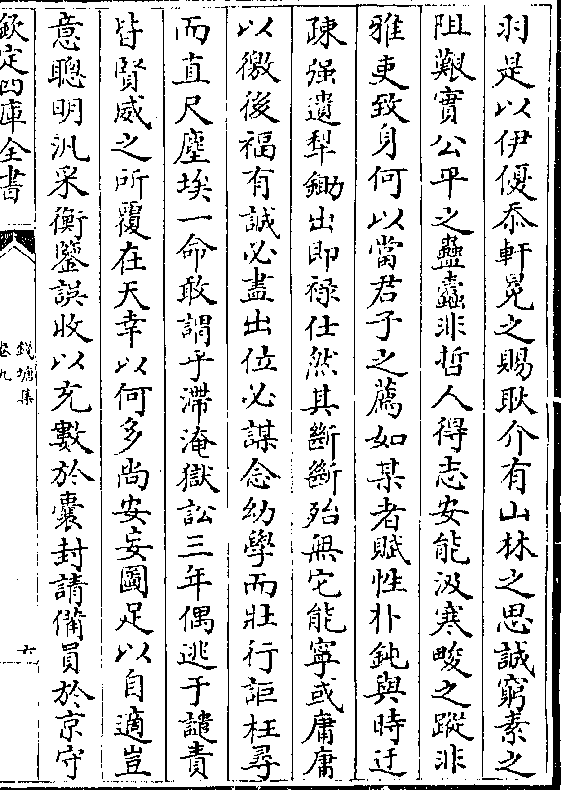 羽是以伊優忝軒冕之賜耿介有山林之思誠窮素之
阻艱實公平之蠱蠧非哲人得志安能汲寒畯之蹤非
雅吏致身何以當君子之薦如某者賦性朴鈍與時迂
疎强遺犁鋤出即禄仕然其斷斷殆無它能寧或庸庸
以徼後福有誠必盡出位必謀念幼學而壯行詎枉尋
而直尺塵埃一命敢謂乎滯淹獄訟三年偶逃于譴責
皆賢威之所覆在天幸以何多尚安妄圖足以自適豈
意聰明汎采衡鑒誤收以充數於囊封請備員於京守
欽定四庫全書
錢塘集
卷九
六